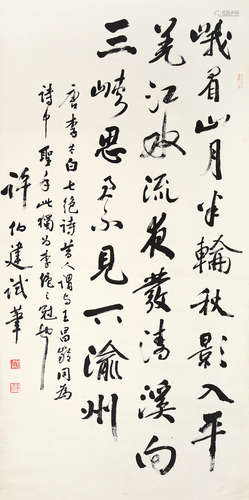 峨眉山月半輪秋影入平
羌江水流夜發清溪向
三峽思君不見下渝州
唐李太白七絕詩昔人謂與王昌齡同為
詩中聖手此獨為李絕之冠
許伯建試筆